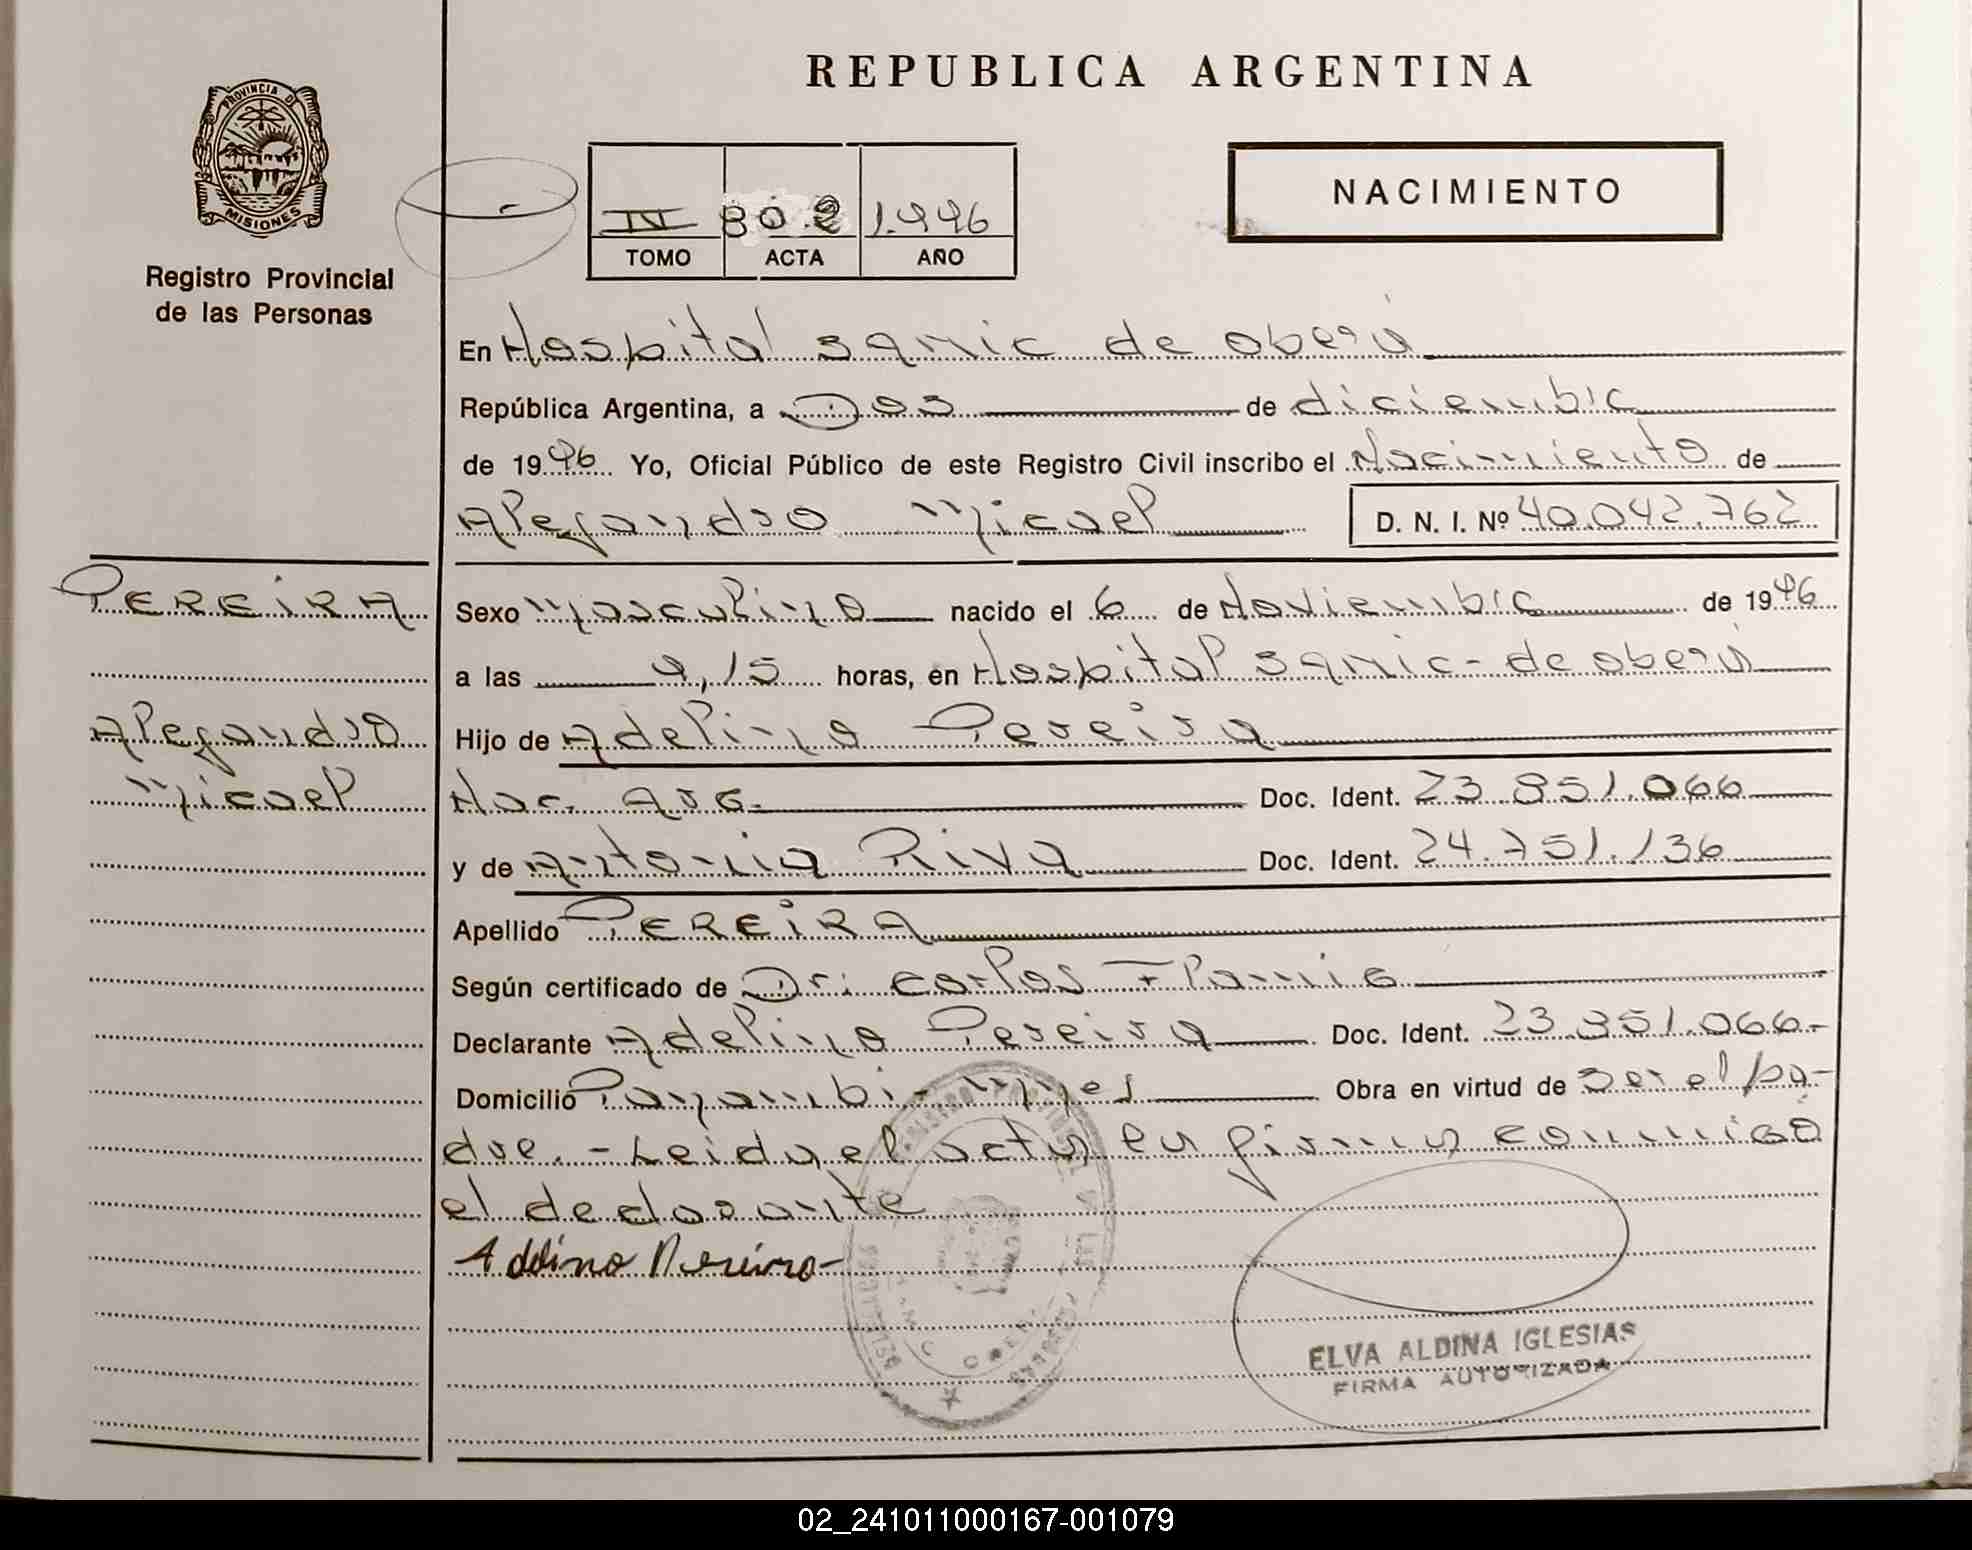 REPUBLICA ARGENTINA
PROVINCIA DE
MISIONES
Registro Provincial
de las Personas
IV 802 1.996
TOMO ACTA AÑO
NACIMIENTO
En Hospital samic de oberá
República Argentina, a Dos de diciembre
de 1996 Yo, Oficial Público de este Registro Civil inscribo el Nacimiento de
Alejandro Micael D. N. I. Nº 40.042.762
PEREIRA
Sexo Masculino nacido el 6 de Noviembre de 1996
a las 9,15 horas, en Hospital samic - de oberá
Alejandro
Hijo de Adelino Pereira
Micael
Nac. Arg. Doc. Ident. 23.851.066
y de Antonia Riva Doc. Ident. 24.751.136
Apellido PEREIRA
Según certificado de Dr: Carlos
Declarante Adelino Pereira Doc. Ident. 23.851.066-
Domicilio Panambi - Mnes Obra en virtud de Ser el pa-
dre. - Leida el acta la firma conmigo
el declarante
Adelino Pereira
ELVA ALDINA IGLESIAS
FIRMA AUTORIZADA
02_241011000167-001079